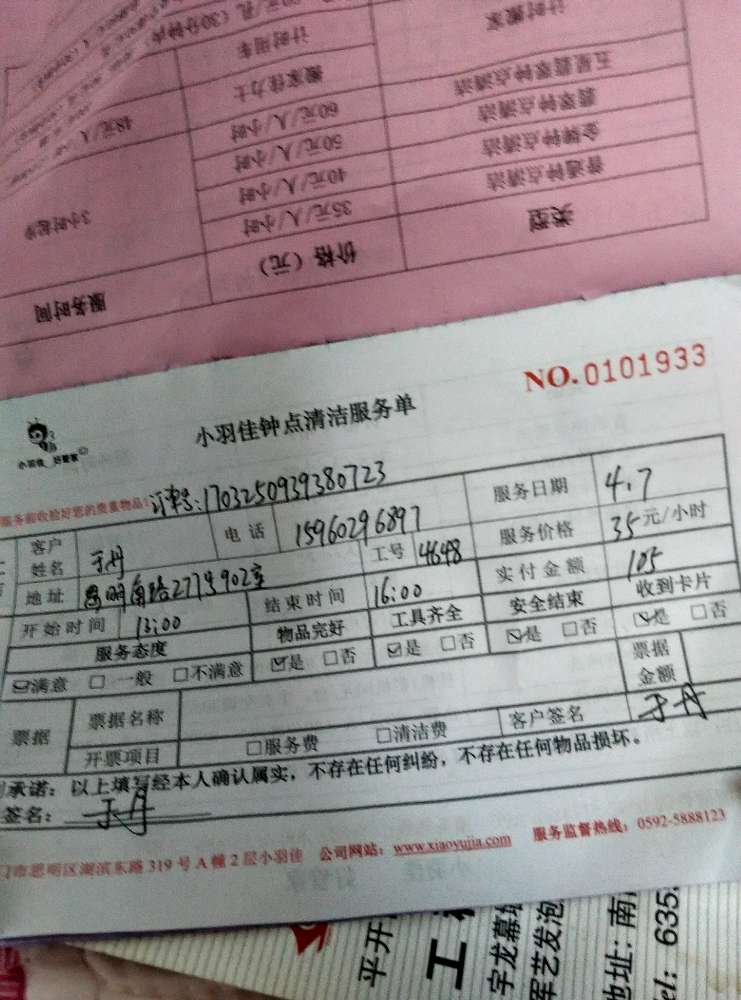 计时搬家
计时用车
搬家佳力士
五星翡翠钟点清洁
翡翠钟点清洁 60元/人/小时 48元/人
金牌钟点清洁 50元/人/小时
普通钟点清洁 40元/人/小时
35元/人/小时 3小时起步
类型 价格(元) 服务时间
NO.0101933
小羽佳 好管家
小羽佳钟点清洁服务单
服务前收验好您的贵重物品: 订单号:1703250939380723
客户姓名 于丹 电话 15960296897 服务日期 4.7
地址 思明南路277号902室 工号 4648 服务价格 35元/小时
开始时间 13:00 结束时间 16:00 实付金额 105
服务态度 物品完好 工具齐全 安全结束 收到卡片
☑满意 □一般 □不满意 ☑是 □否 ☑是 □否 ☑是 □否 ☑是 □否
票据 票据名称 票据金额
开票项目 □服务费 □清洁费 客户签名 于丹
承诺:以上填写经本人确认属实,不存在任何纠纷,不存在任何物品损坏。
签名: 于丹
门市思明区湖滨东路319号A幢2层小羽佳 公司网站:www.xiaoyujia.com 服务监督热线:0592-5888123
平开
工
宇龙幕墙
晖艺发泡
地址:南
el: 635